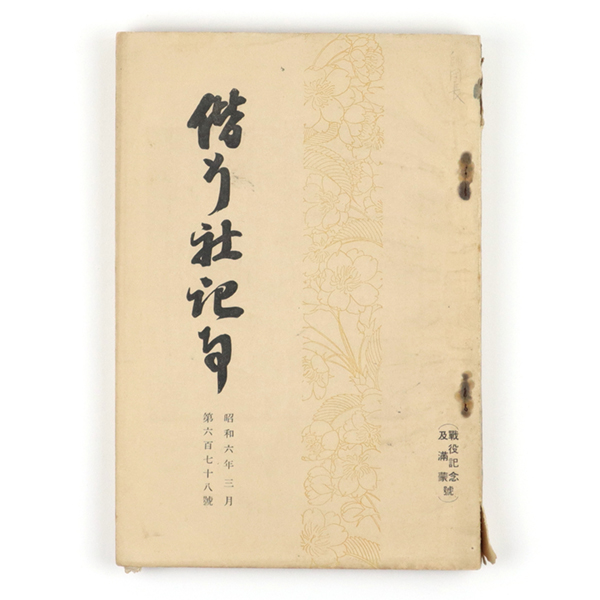 （戰役記念號
及滿蒙）
偕行社記事
昭和六年三月
第六百七十八號